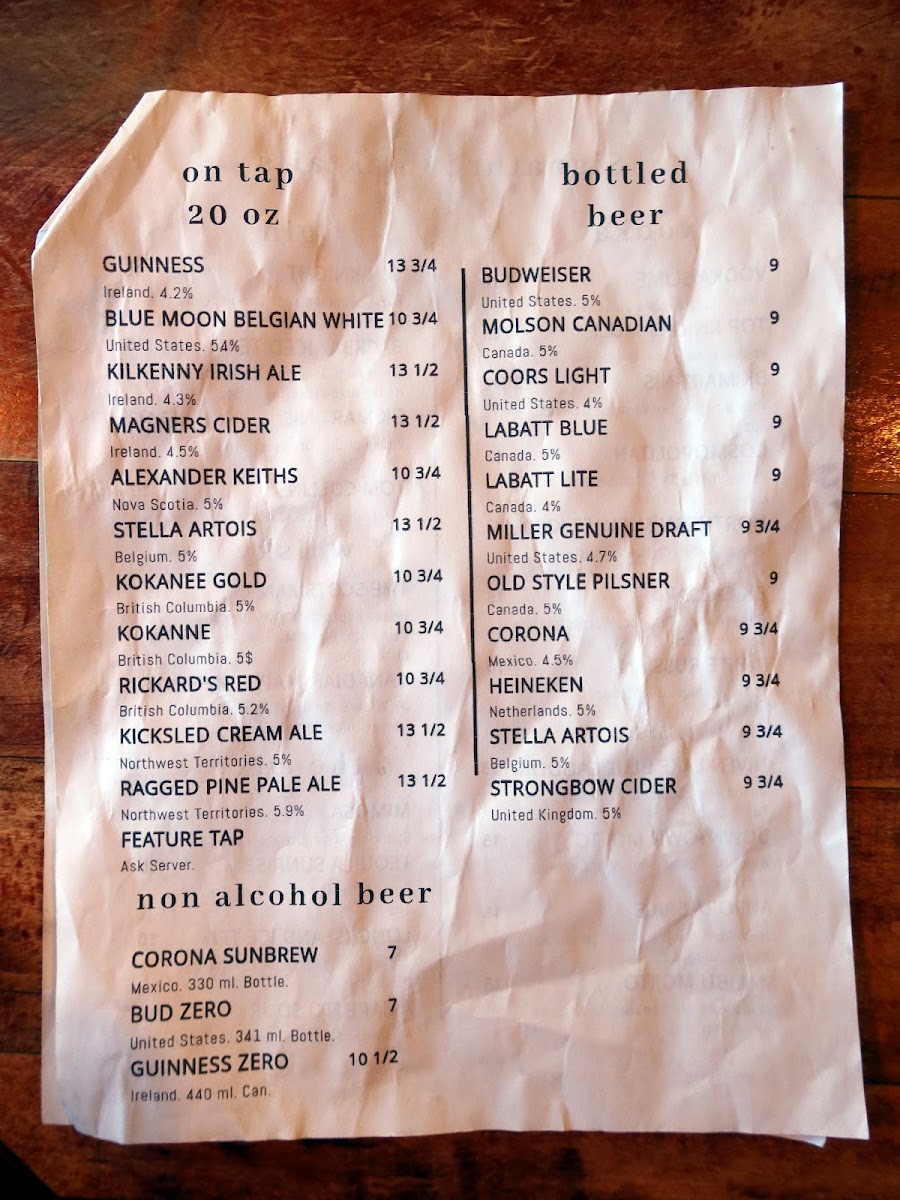 on tap
20 oz
GUINNESS 13 3/4
Ireland. 4.2%
BLUE MOON BELGIAN WHITE 10 3/4
United States. 54%
KILKENNY IRISH ALE 13 1/2
Ireland. 4.3%
MAGNERS CIDER 13 1/2
Ireland. 4.5%
ALEXANDER KEITHS 10 3/4
Nova Scotia. 5%
STELLA ARTOIS 13 1/2
Belgium. 5%
KOKANEE GOLD 10 3/4
British Columbia. 5%
KOKANNE 10 3/4
British Columbia. 5$
RICKARD'S RED 10 3/4
British Columbia. 5.2%
KICKSLED CREAM ALE 13 1/2
Northwest Territories. 5%
RAGGED PINE PALE ALE 13 1/2
Northwest Territories. 5.9%
FEATURE TAP
Ask Server.
non alcohol beer
CORONA SUNBREW 7
Mexico. 330 ml. Bottle.
BUD ZERO 7
United States. 341 ml. Bottle.
GUINNESS ZERO 10 1/2
Ireland. 440 ml. Can.
bottled
beer
BUDWEISER 9
United States. 5%
MOLSON CANADIAN 9
Canada. 5%
COORS LIGHT 9
United States. 4%
LABATT BLUE 9
Canada. 5%
LABATT LITE 9
Canada. 4%
MILLER GENUINE DRAFT 9 3/4
United States. 4.7%
OLD STYLE PILSNER 9
Canada. 5%
CORONA 9 3/4
Mexico. 4.5%
HEINEKEN 9 3/4
Netherlands. 5%
STELLA ARTOIS 9 3/4
Belgium. 5%
STRONGBOW CIDER 9 3/4
United Kingdom. 5%